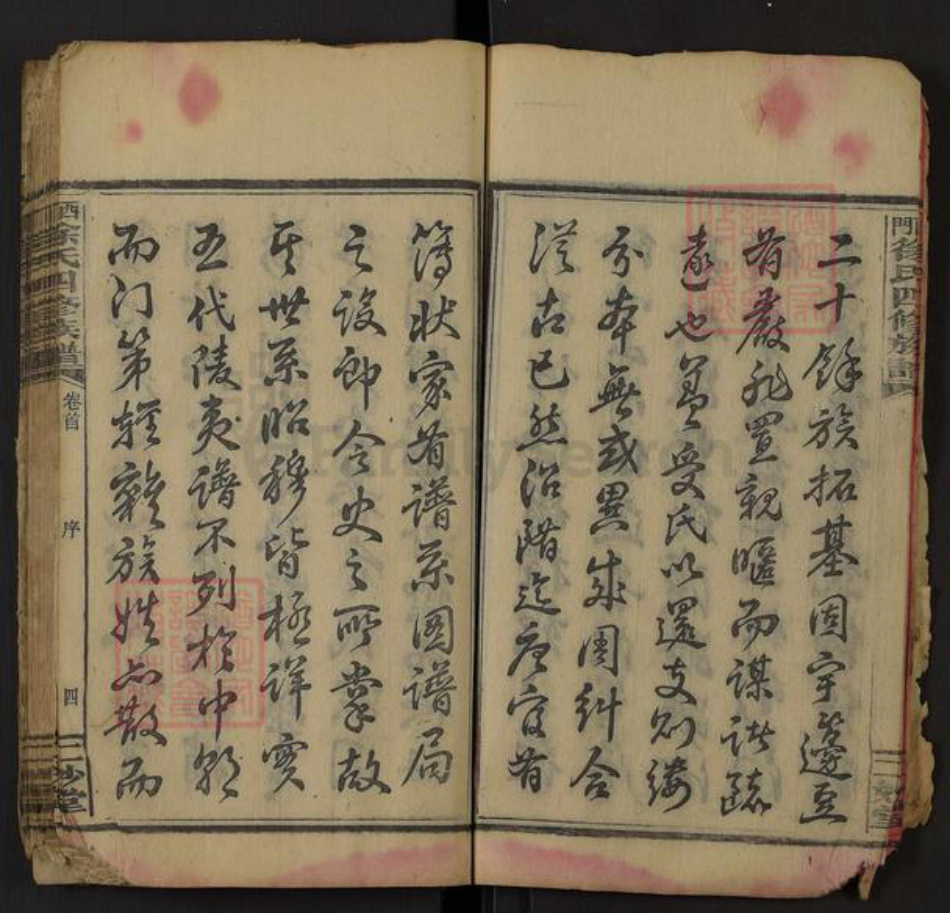 門徐氏四修族譜
二十餘族拓基固宇籩豆
有嚴非置親暱而謀詆疏
遠也蓋受氏以還支別縷
分本無或異敢圖糾合
從古已然沿階迄唐官有
簿狀家有譜系圖譜局
之設郎令史之所掌故
其世系昭穆皆極詳實
五代陵夷譜不列於中朝
而門第雜糅族姓亦散而
酉徐氏四修族譜
卷首
序
四